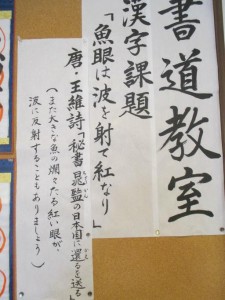 書道教室
漢字課題
「魚眼は波を射て紅なり」
唐・王維詩「秘書晁監の日本国に還るを送る」
(また大きな魚の爛々たる紅い眼が、
波に反射することもありましょう)